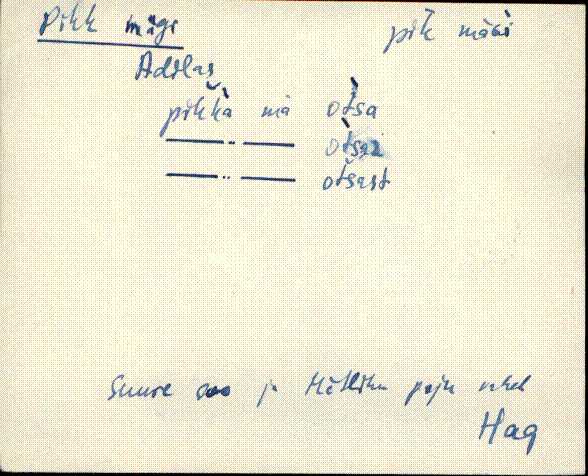 Pikk mägi pik mägi
Adilas
pikkà mä òtsa
— " — òtsaz
— " — otsast
Suure soo ja paju vahel
Hag